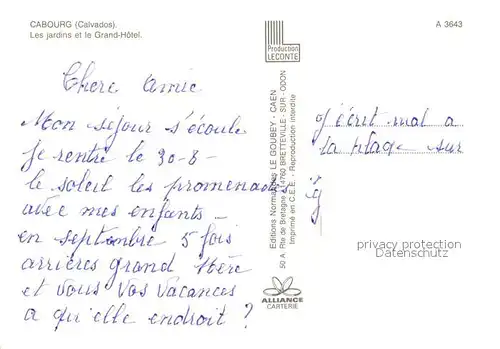 CABOURG (Calvados).
Les jardins et le Grand-Hôtel.
A 3643
Production
LECONTE
Chere amie
Mon séjour s'écoule
je rentre le 30-8-
le soleil les promenades
avec mes enfants -
en septembre 5 fois
arrières grand Mère
et vous vos vacances
a qu'elle endroit ?
Editions Normandes LE GOUBEY - CAEN
50 A Rte de Bretagne 14760 BRETTEVILLE - SUR - ODON
Imprimé en C.E.E. - Reproduction interdite
ALLIANCE
CARTERIE
j'écrit mal a
la plage sur
privacy protection
Datenschutz